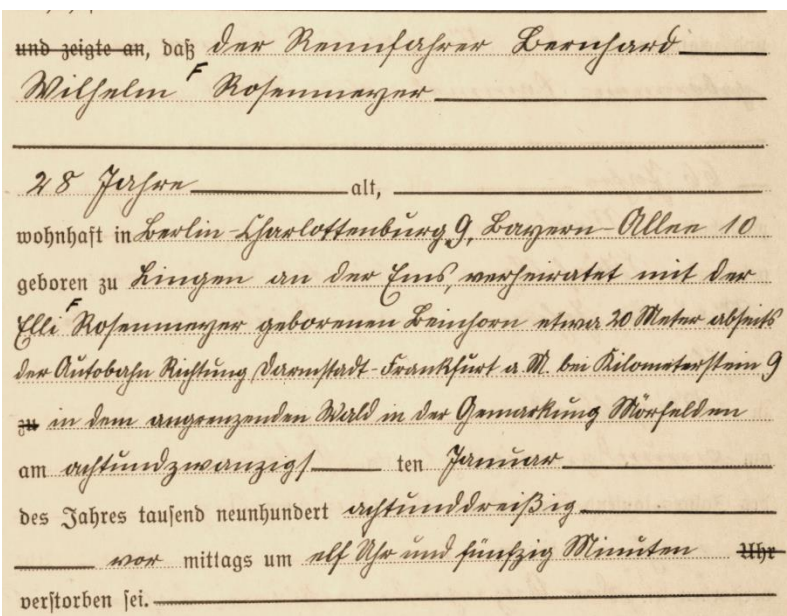 und zeigte an, daß der Rennfahrer Bernhard
Wilhelm F Rosenmeyer
28 Jahre alt,
wohnhaft in Berlin-Charlottenburg 9, Bayern-Allee 10
geboren zu Lingen an der Ems, verheiratet mit der
Elli F Rosenmeyer geborenen Beinhorn etwa 20 Meter abseits
der Autobahn Richtung Darmstadt-Frankfurt a. M. bei Kilometerstein 9
zu in dem angrenzenden Wald in der Gemarkung Mörfelden
am achtundzwanzigs ten Januar
des Jahres tausend neunhundert achtunddreißig
vor mittags um elf Uhr und fünfzig Minuten Uhr
verstorben sei.